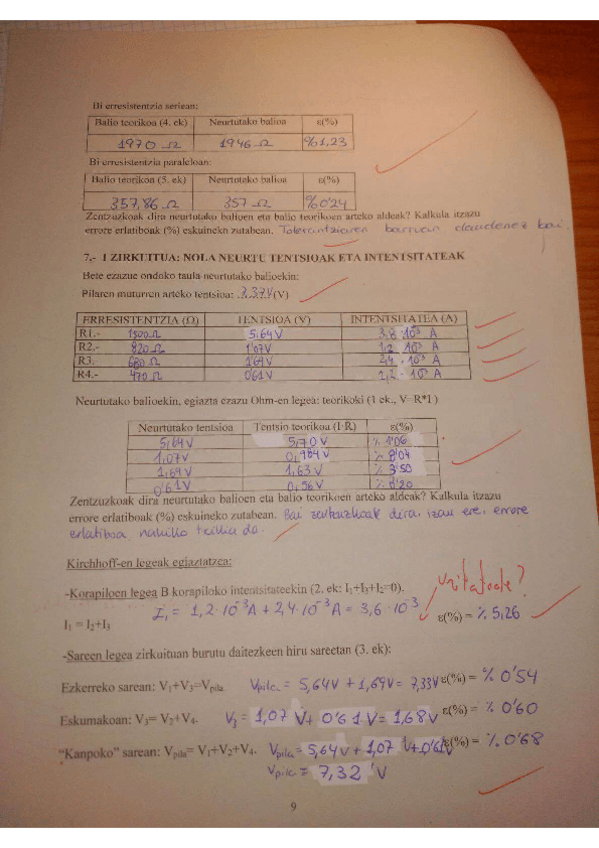 Bi erresistentzia seriean:
Balio teorikoa (4. ek) Neurtutako balioa ε(%)
1970 Ω 1946 Ω %1,23
Bi erresistentzia paraleloan:
Balio teorikoa (5. ek) Neurtutako balioa ε(%)
357,86 Ω 357 Ω %0'24
Zentzuzkoak dira neurtutako balioen eta balio teorikoen arteko aldeak? Kalkula itzazu
errore erlatiboak (%) eskuineko zutabean. Tolerantziaren barruan daudenez bai.
7.- 1 ZIRKUITUA: NOLA NEURTU TENTSIOAK ETA INTENTSITATEAK
Bete ezazue ondoko taula neurtutako balioekin:
Pilaren muturren arteko tentsioa: 7,37V(V)
ERRESISTENTZIA (Ω) TENTSIOA (V) INTENTSITATEA (A)
R1.- 1500Ω 5,64V 3,8·10³ A
R2.- 820Ω 1'07V 1,2·10³ A
R3.- 680Ω 1'69V 2,4·10³ A
R4.- 470Ω 0'61V 1,2·10³ A
Neurtutako balioekin, egiazta ezazu Ohm-en legea: teorikoki (1 ek., V=R*I)
Neurtutako tentsioa Tentsio teorikoa (I·R) ε(%)
5,64V 5,70V % 1'06
1,07V 0,984V % 8'04
1,69V 1,63V % 3'50
0'61V 0,56V % 8'20
Zentzuzkoak dira neurtutako balioen eta balio teorikoen arteko aldeak? Kalkula itzazu
errore erlatiboak (%) eskuineko zutabean. Bai zentzuzkoak dira, izan ere, errore
erlatiboa nahiko txikia da.
Kirchhoff-en legeak egiaztatzea:
unitateak?
-Korapiloen legea B korapiloko intentsitateekin (2. ek: I₁+I₃+I₂=0).
I₁ = I₂+I₃ I₁ = 1,2·10⁻³A + 2,4·10⁻³A = 3,6·10⁻³ ε(%) = % 5,26
-Sareen legea zirkuituan burutu daitezkeen hiru sareetan (3. ek):
Ezkerreko sarean: V₁+V₃=Vpila Vpila = 5,64V + 1,69V = 7,33V ε(%) = % 0'54
Eskumakoan: V₃= V₂+V₄. V₃ = 1,07 V + 0'61V = 1,68V ε(%) = % 0'60
"Kanpoko" sarean: Vpila= V₁+V₂+V₄. Vpila = 5,64V + 1,07 V + 0,61V ε(%) = % 0'68
Vpila = 7,32 'V
9